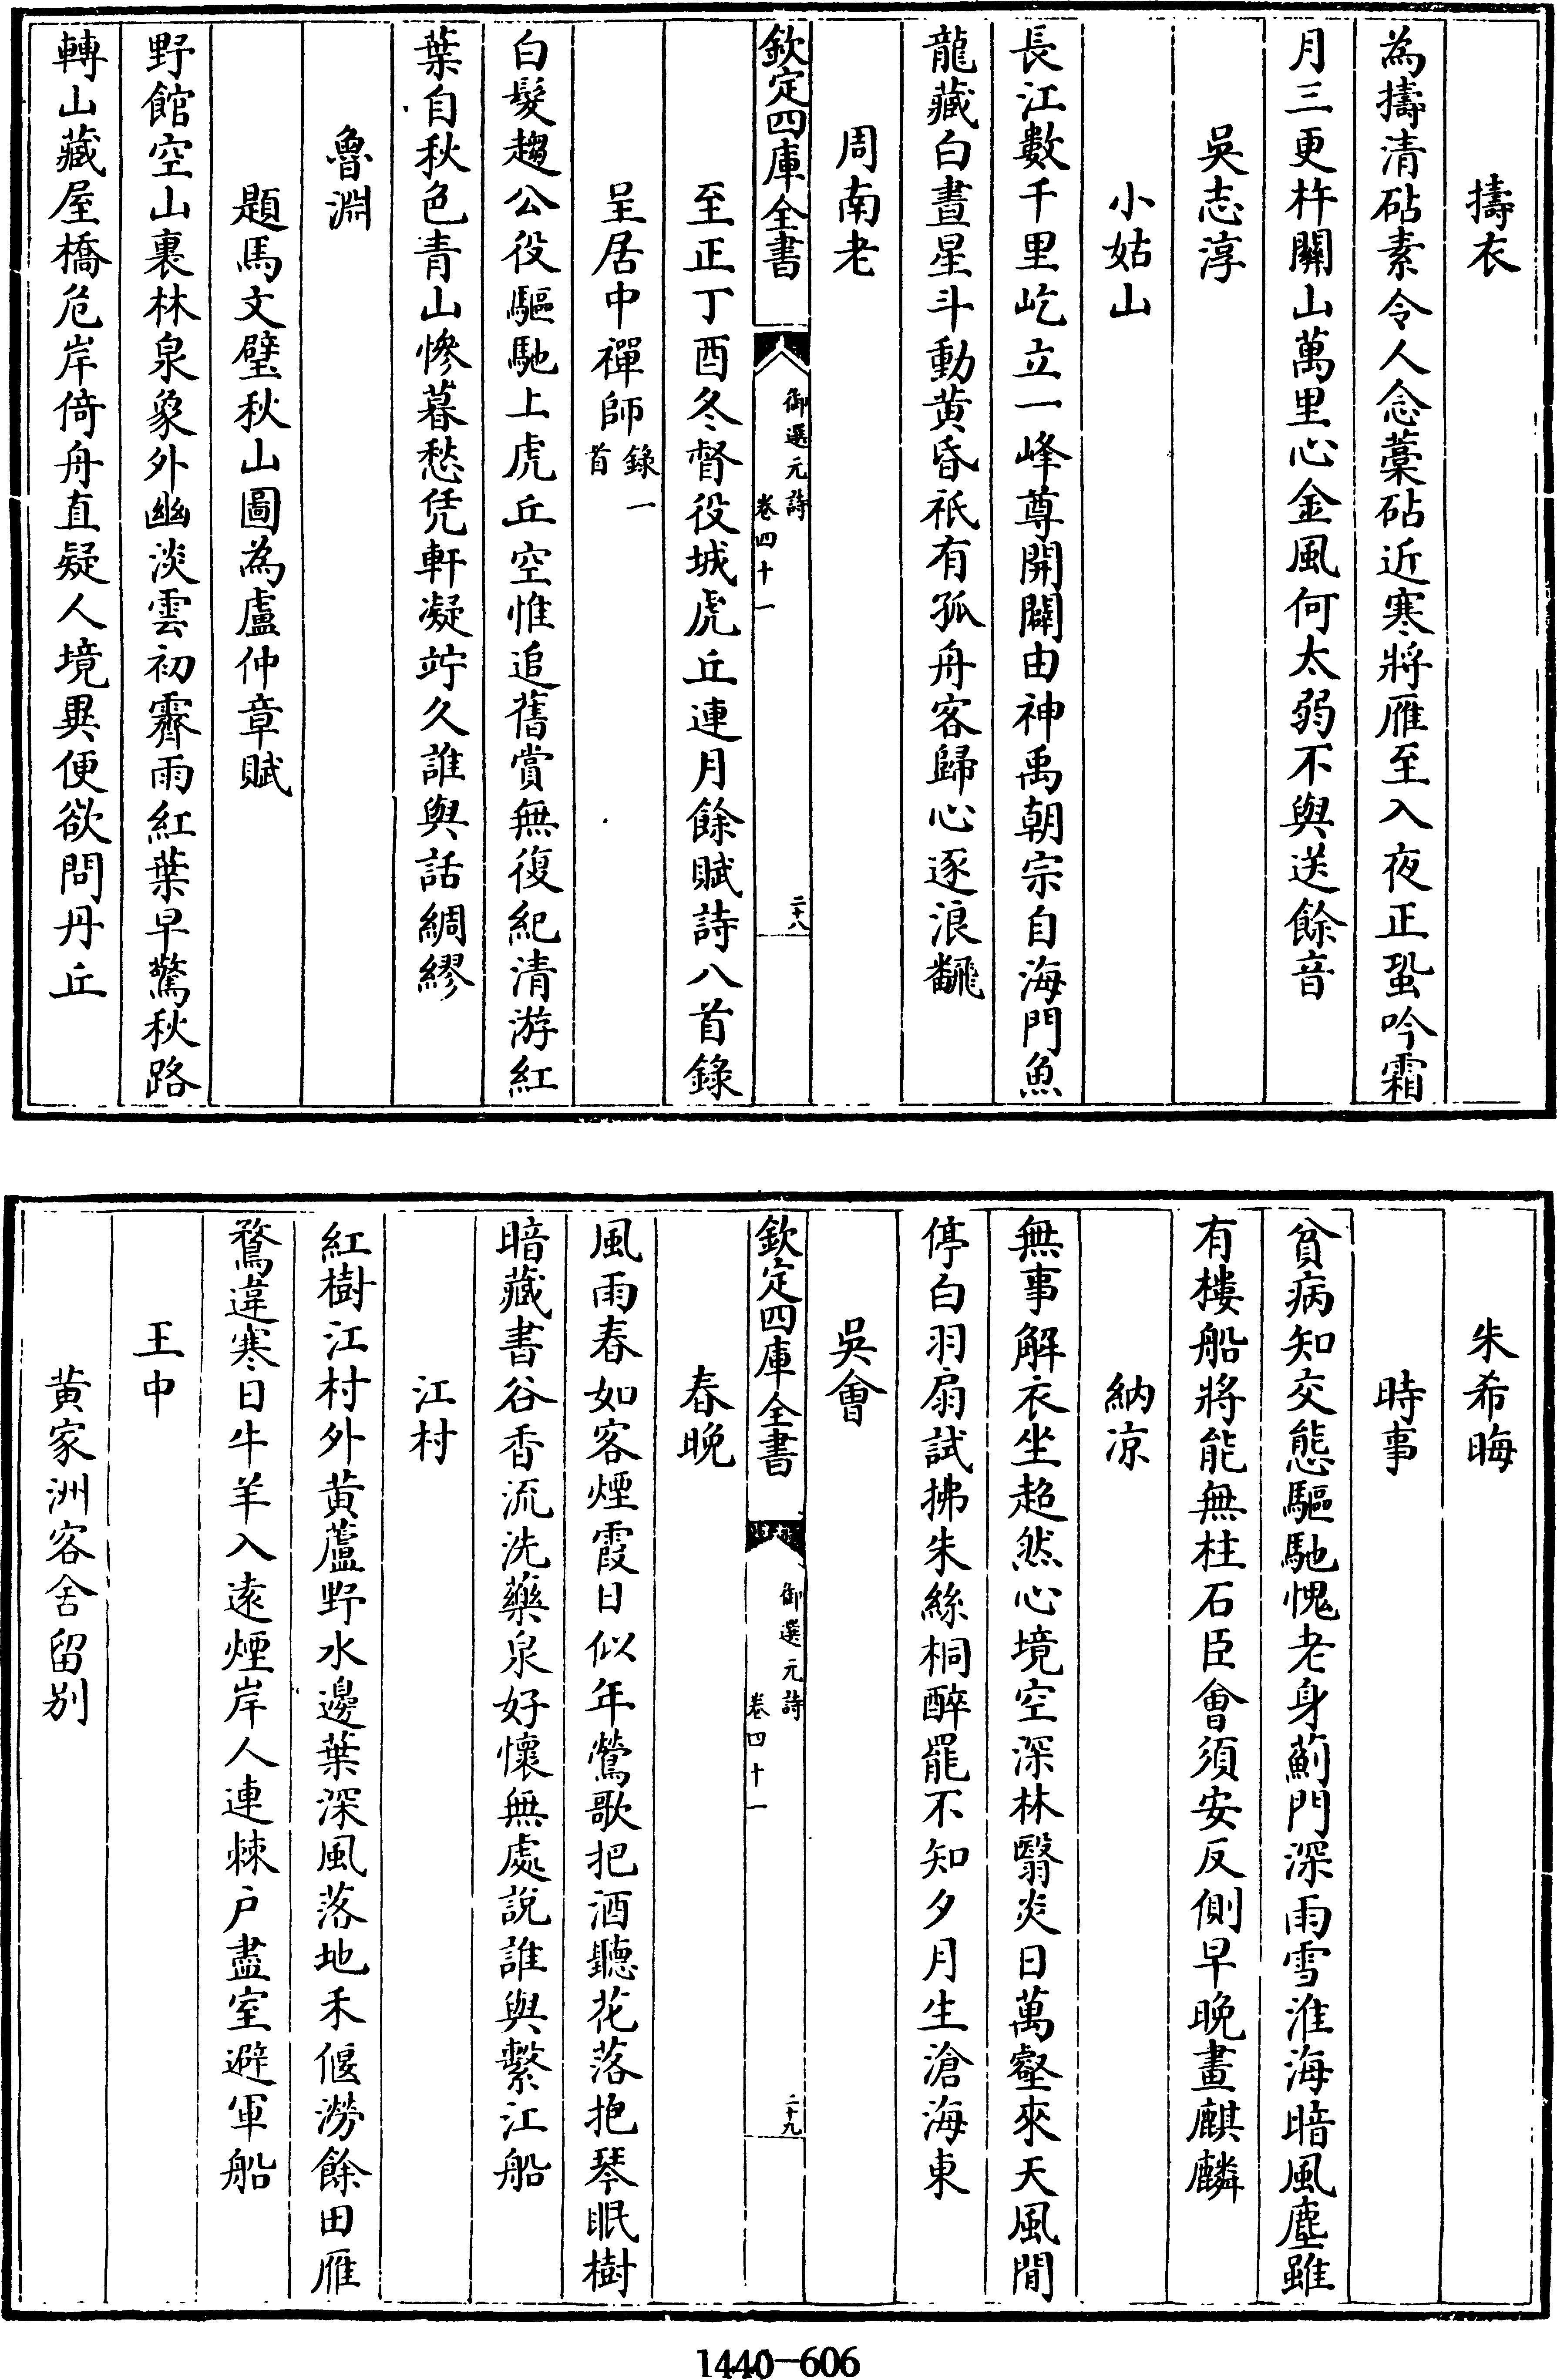 擣衣
為擣清砧素令人念藁砧近寒將雁至入夜正蛩吟霜
月三更杵關山萬里心金風何太弱不與送餘音
吳志淳
小姑山
長江數千里屹立一峰尊開闢由神禹朝宗自海門魚
龍藏白晝星斗動黄昏祇有孤舟客歸心逐浪飜
周南老
欽定四庫全書
御選元詩
卷四十一
二十八
至正丁酉冬督役城虎丘連月餘賦詩八首錄
呈居中禪師錄一
首
白髮趨公役驅馳上虎丘空惟追舊賞無復紀清游紅
葉自秋色青山慘暮愁凭軒凝竚久誰與話綢繆
魯淵
題馬文璧秋山圖為盧仲章賦
野館空山裏林泉象外幽淡雲初霽雨紅葉早驚秋路
轉山藏屋橋危岸倚舟直疑人境異便欲問丹丘
朱希晦
時事
貧病知交態驅馳愧老身薊門深雨雪淮海暗風塵雖
有樓船將能無柱石臣會須安反側早晚畫麒麟
納凉
無事解衣坐超然心境空深林翳炎日萬壑來天風閒
停白羽扇試拂朱絲桐醉罷不知夕月生滄海東
吳會
欽定四庫全書
御選元詩
卷四十一
二十九
春晚
風雨春如客煙霞日似年鶯歌把酒聽花落抱琴眠樹
暗藏書谷香流洗藥泉好懷無處說誰與繫江船
江村
紅樹江村外黄蘆野水邊葉深風落地禾偃澇餘田雁
鶩違寒日牛羊入遠煙岸人連棘户盡室避軍船
王中
黄家洲客舍留别
1440—606